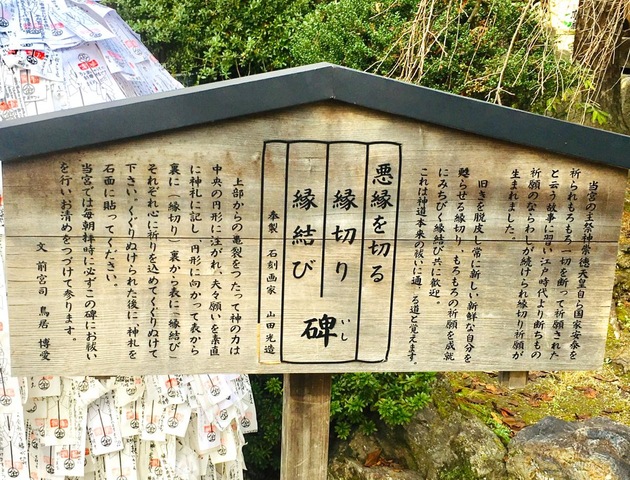 当宮の主祭神崇徳天皇自ら国家安泰を
祈られもろもろ一切を断って祈願された
と云う故事に習い江戸時代より断ちもの
祈願のならわしが続けられ縁切り祈願が
生まれました。
旧きを脱皮し常に新しい新鮮な自分を
甦らせる縁切り、もろもろの祈願を成就
にみちびく縁結び共に歓迎。
これは神道本来の祓いに通ずる道と覚えます。
悪縁を切る
縁切り
縁結び
碑
いし
奉製 石刻画家 山田光造
上部からの亀裂をつたって神の力は
中央の円形に注がれ、夫々願いを素直
に神札に記し、円形に向かって表から
裏に（縁切り）裏から表に（縁結び）
それぞれ心に祈りを込めてくぐりぬけて
下さい。くぐりぬけられた後に神札を
石面に貼ってください。
当宮では毎朝拝時に必ずこの碑にお祓い
を行いお清めをつづけて参ります。
文 前宮司 鳥居 博愛